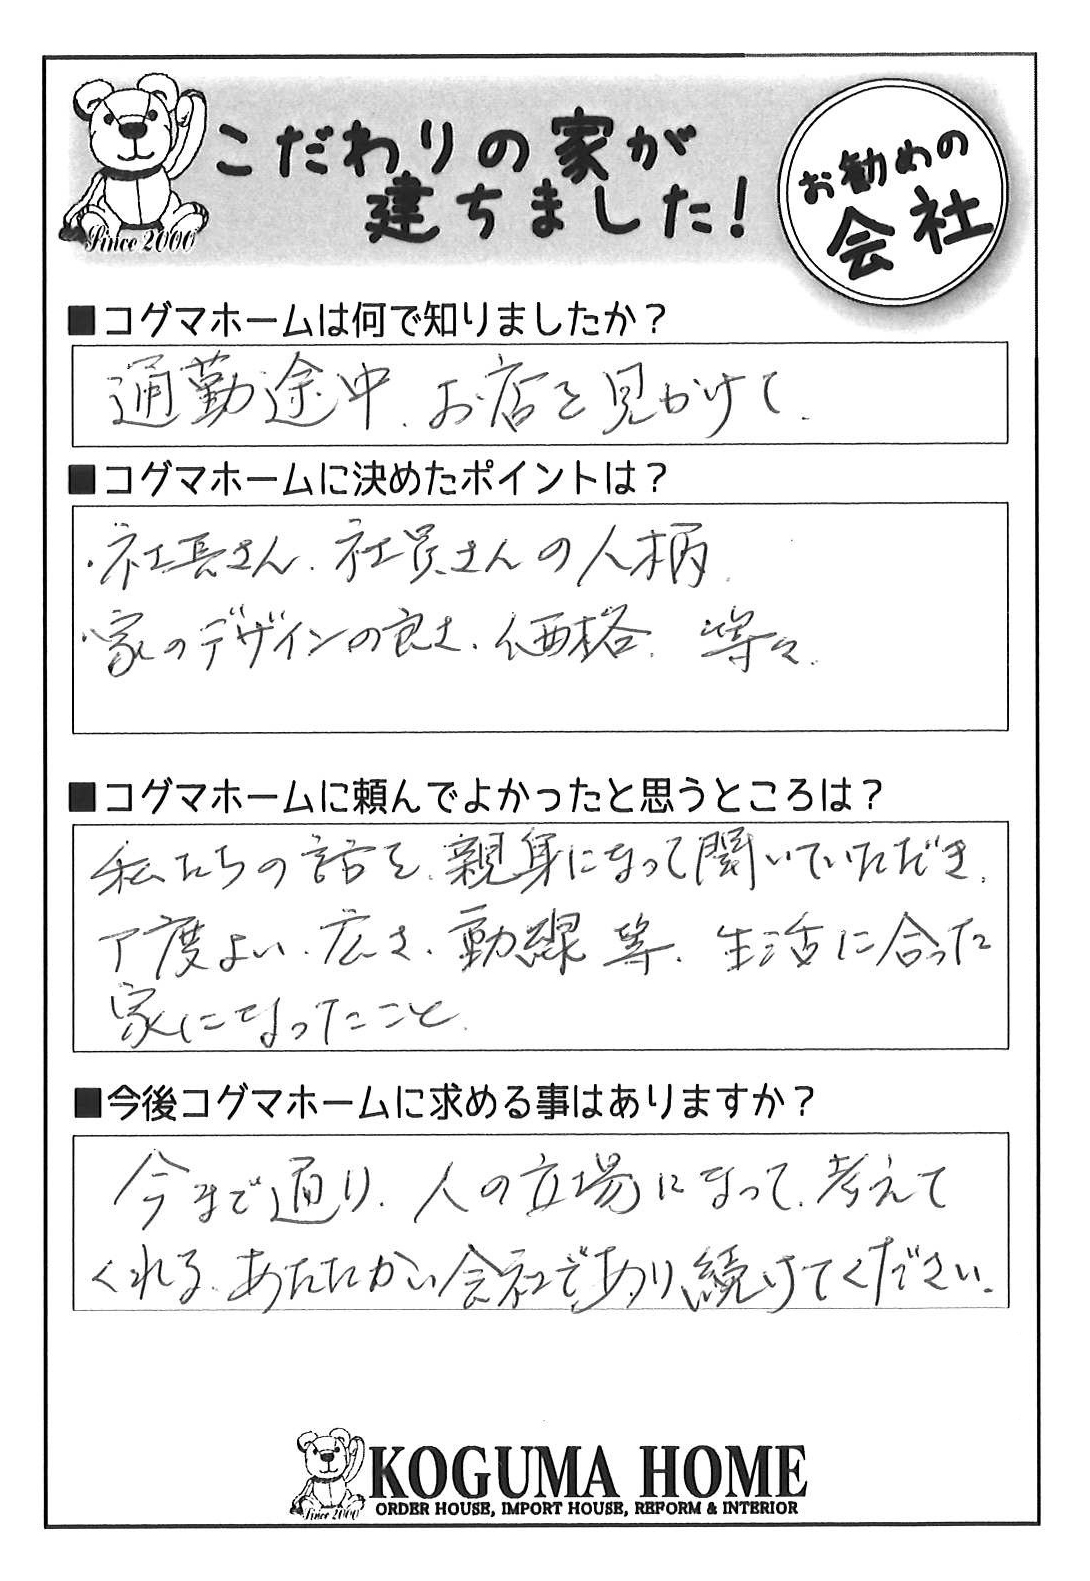 こだわりの家が
建ちました!
お勧めの
会社
Since 2000
■コグマホームは何で知りましたか?
通勤途中、お店を見かけて、
■コグマホームに決めたポイントは?
・社長さん、社員さんの人柄、
・家のデザインの良さ、価格、等々、
■コグマホームに頼んでよかったと思うところは?
私たちの話を、親身になって聞いていただき、
丁度よい、広さ、動線等、生活に合った
家になったこと、
■今後コグマホームに求める事はありますか?
今まで通り、人の立場になって、考えて
くれる、あたたかい会社であり続けてください。
Since 2000
KOGUMA HOME
ORDER HOUSE, IMPORT HOUSE, REFORM & INTERIOR